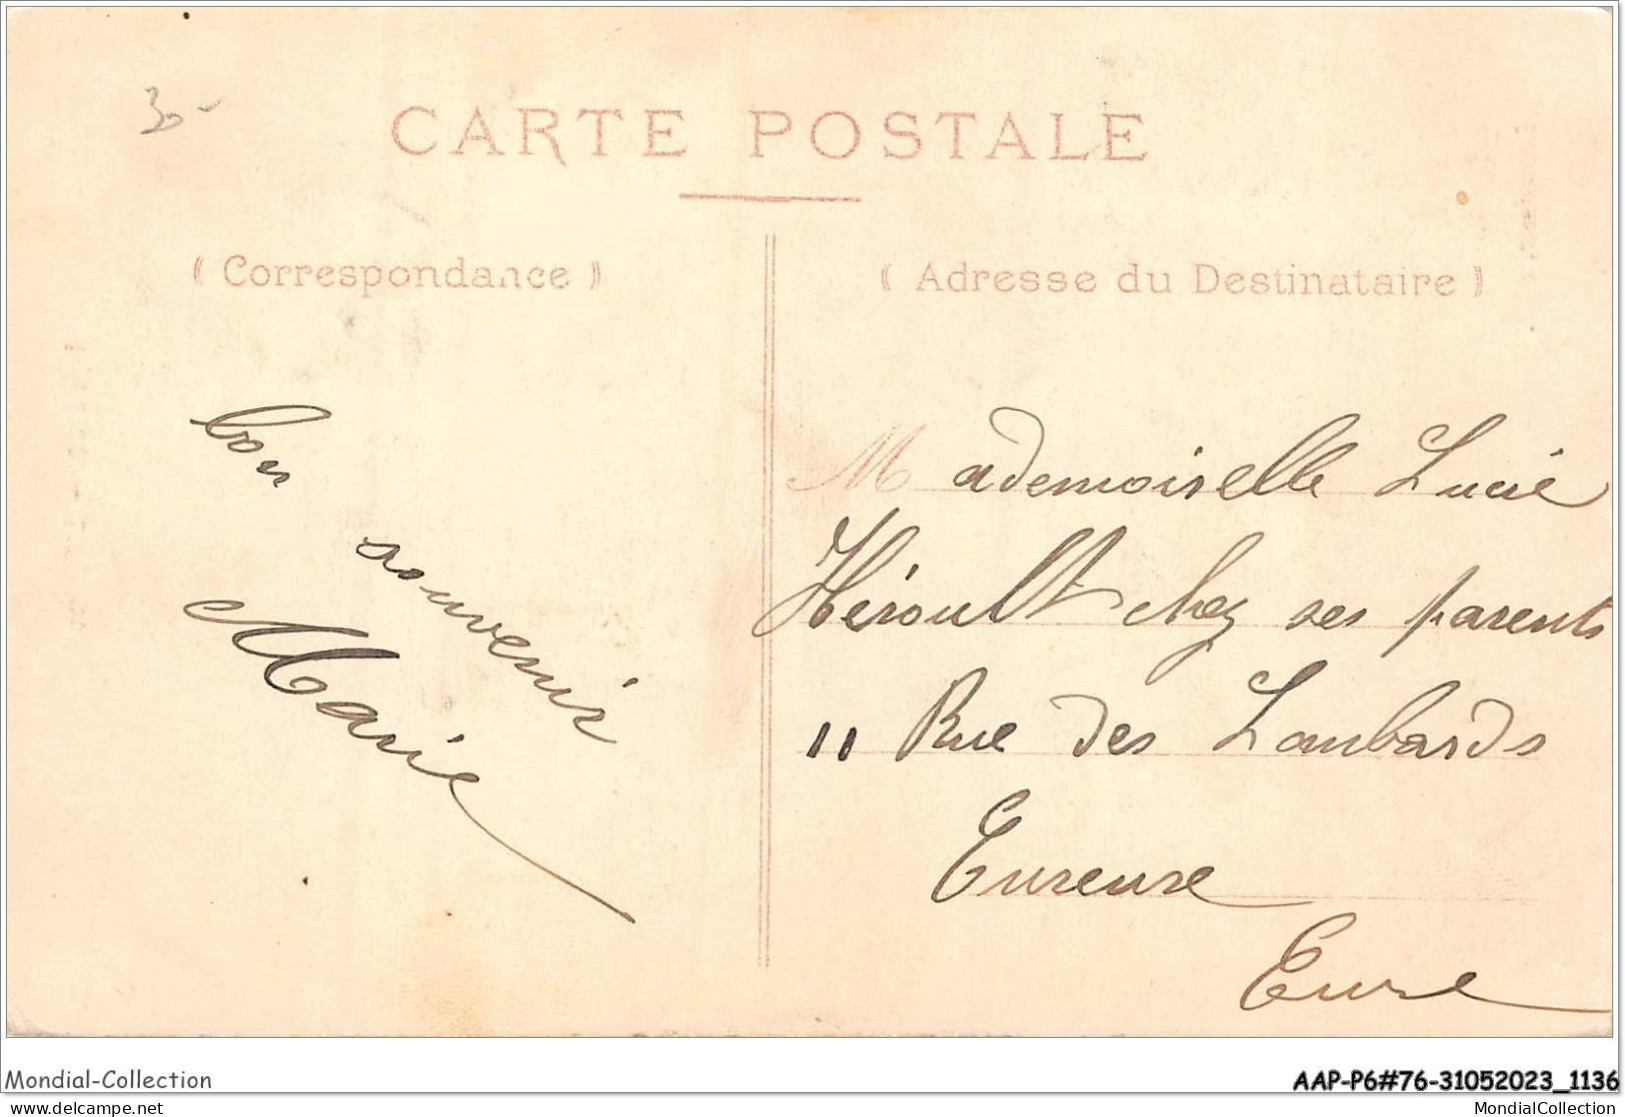 30-
CARTE POSTALE
( Correspondance )
( Adresse du Destinataire )
bon
souvenir
Marie
Mademoiselle Lucie
Héroult chez ses parents
11 Rue des Lombards
Eure
Mondial-Collection
AAP-P6#76-31052023_1136
delcampe.net
MondialCollection